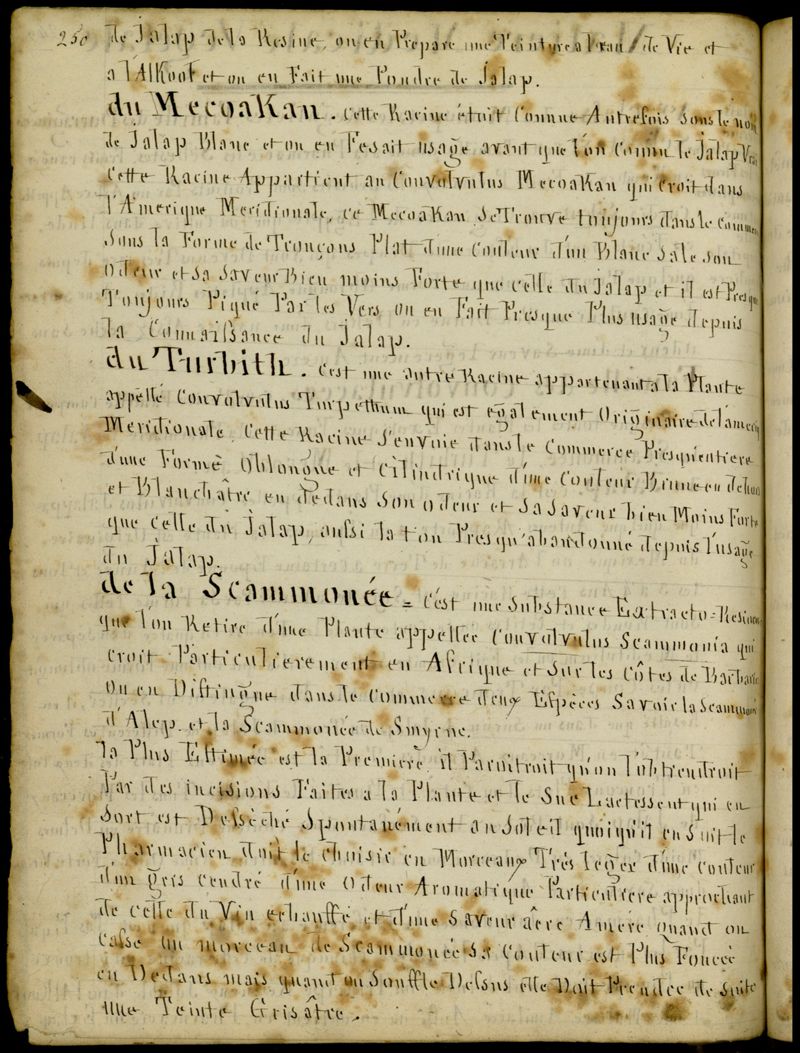 250
de Jalap de la Resine, on en Prepare une Teinture a l'eau de Vie et
a l'Alkool et on en Fait une Poudre de Jalap.
du Mecoakan. Cette Racine étoit Connue Autrefois sous le nom
de Jalap Blanc et on en Fesait usage avant que l'on Connu le Jalap Vrai
Cette Racine Appartient au Convolvulus Mecoakan qui Croit dans
l'Amerique Meridionale, ce Mecoakan se Trouve toujours dans le Commer
Sous la Forme de Tronçons Plat d'une Couleur d'un Blanc sale son
Odeur et sa saveur Bien moins Forte que celle du Jalap et il est Presque
Toujours Piqué Par les Vers on en Fait Presque Plus usage depuis
la Connaissance du Jalap.
du Turbith. C'est une autre Racine appartenant a la Plante
appellé Convolvulus Turpethum qui est egalement Originaire de l'ameriq
Meridionale. Cette Racine S'envoie dans le Commerce Presqu'entiere
d'une Forme Oblongue et Cilindrique d'une Couleur Brune en dehors
et Blanchâtre en dedans Son odeur et Sa Saveur bien Moins Forte
que celle du Jalap, aussi la t'on Presqu'abandonné depuis l'usage
du Jalap.
de la Scammonée = C'est une Substance Extracto-Resineuse
que l'on Retire d'une Plante appellée Convolvulus Scammonia qui
Croit Particulierement en Afrique et Sur les Côtes de Barbarie
On en Distingue dans le Commerce deux Espèces Savoir la Scammonée
d'Alep. et la Scammonée de Smyrne.
la Plus Estimée est la Première. il Paroitroit qu'on l'obtiendroit
Par des incisions Faites a la Plante et le Suc Lactessent qui en
Sort est Desséché Spontanément au Soleil quoiqu'il en Soit le
Pharmacien doit le choisir en Morceaux Très leger d'une Couleur
d'un gris Cendré d'une Odeur Aromatique Particuliere approchant
de celle du Vin echauffé et d'une Saveur âcre Amere quand on
Casse un morceau de Scammonée Sa Couleur est Plus Foncée
en Dedans mais quand on Souffle Dessus elle Doit Prendre de Suite
Une Teinte Grisâtre.